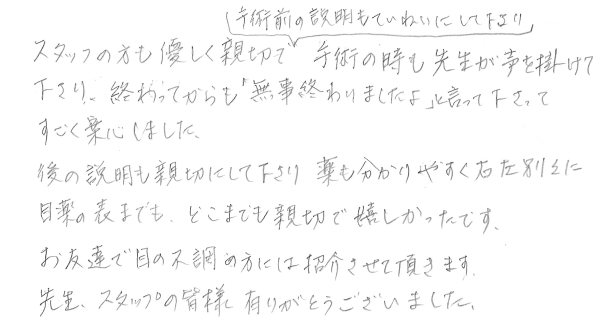 (手術前の説明もていねいにして下さり
スタッフの方も優しく親切で 手術の時も先生が声を掛けて
下さり、終わってからも「無事終わりましたよ」と言って下さって
すごく安心しました、
後の説明も親切にして下さり 薬も分かりやすく右左別々に
目薬の表までも、どこまでも親切で嬉しかったです、
お友達で目の不調の方には紹介させて頂きます、
先生、スタップの皆様 有りがとうございました、